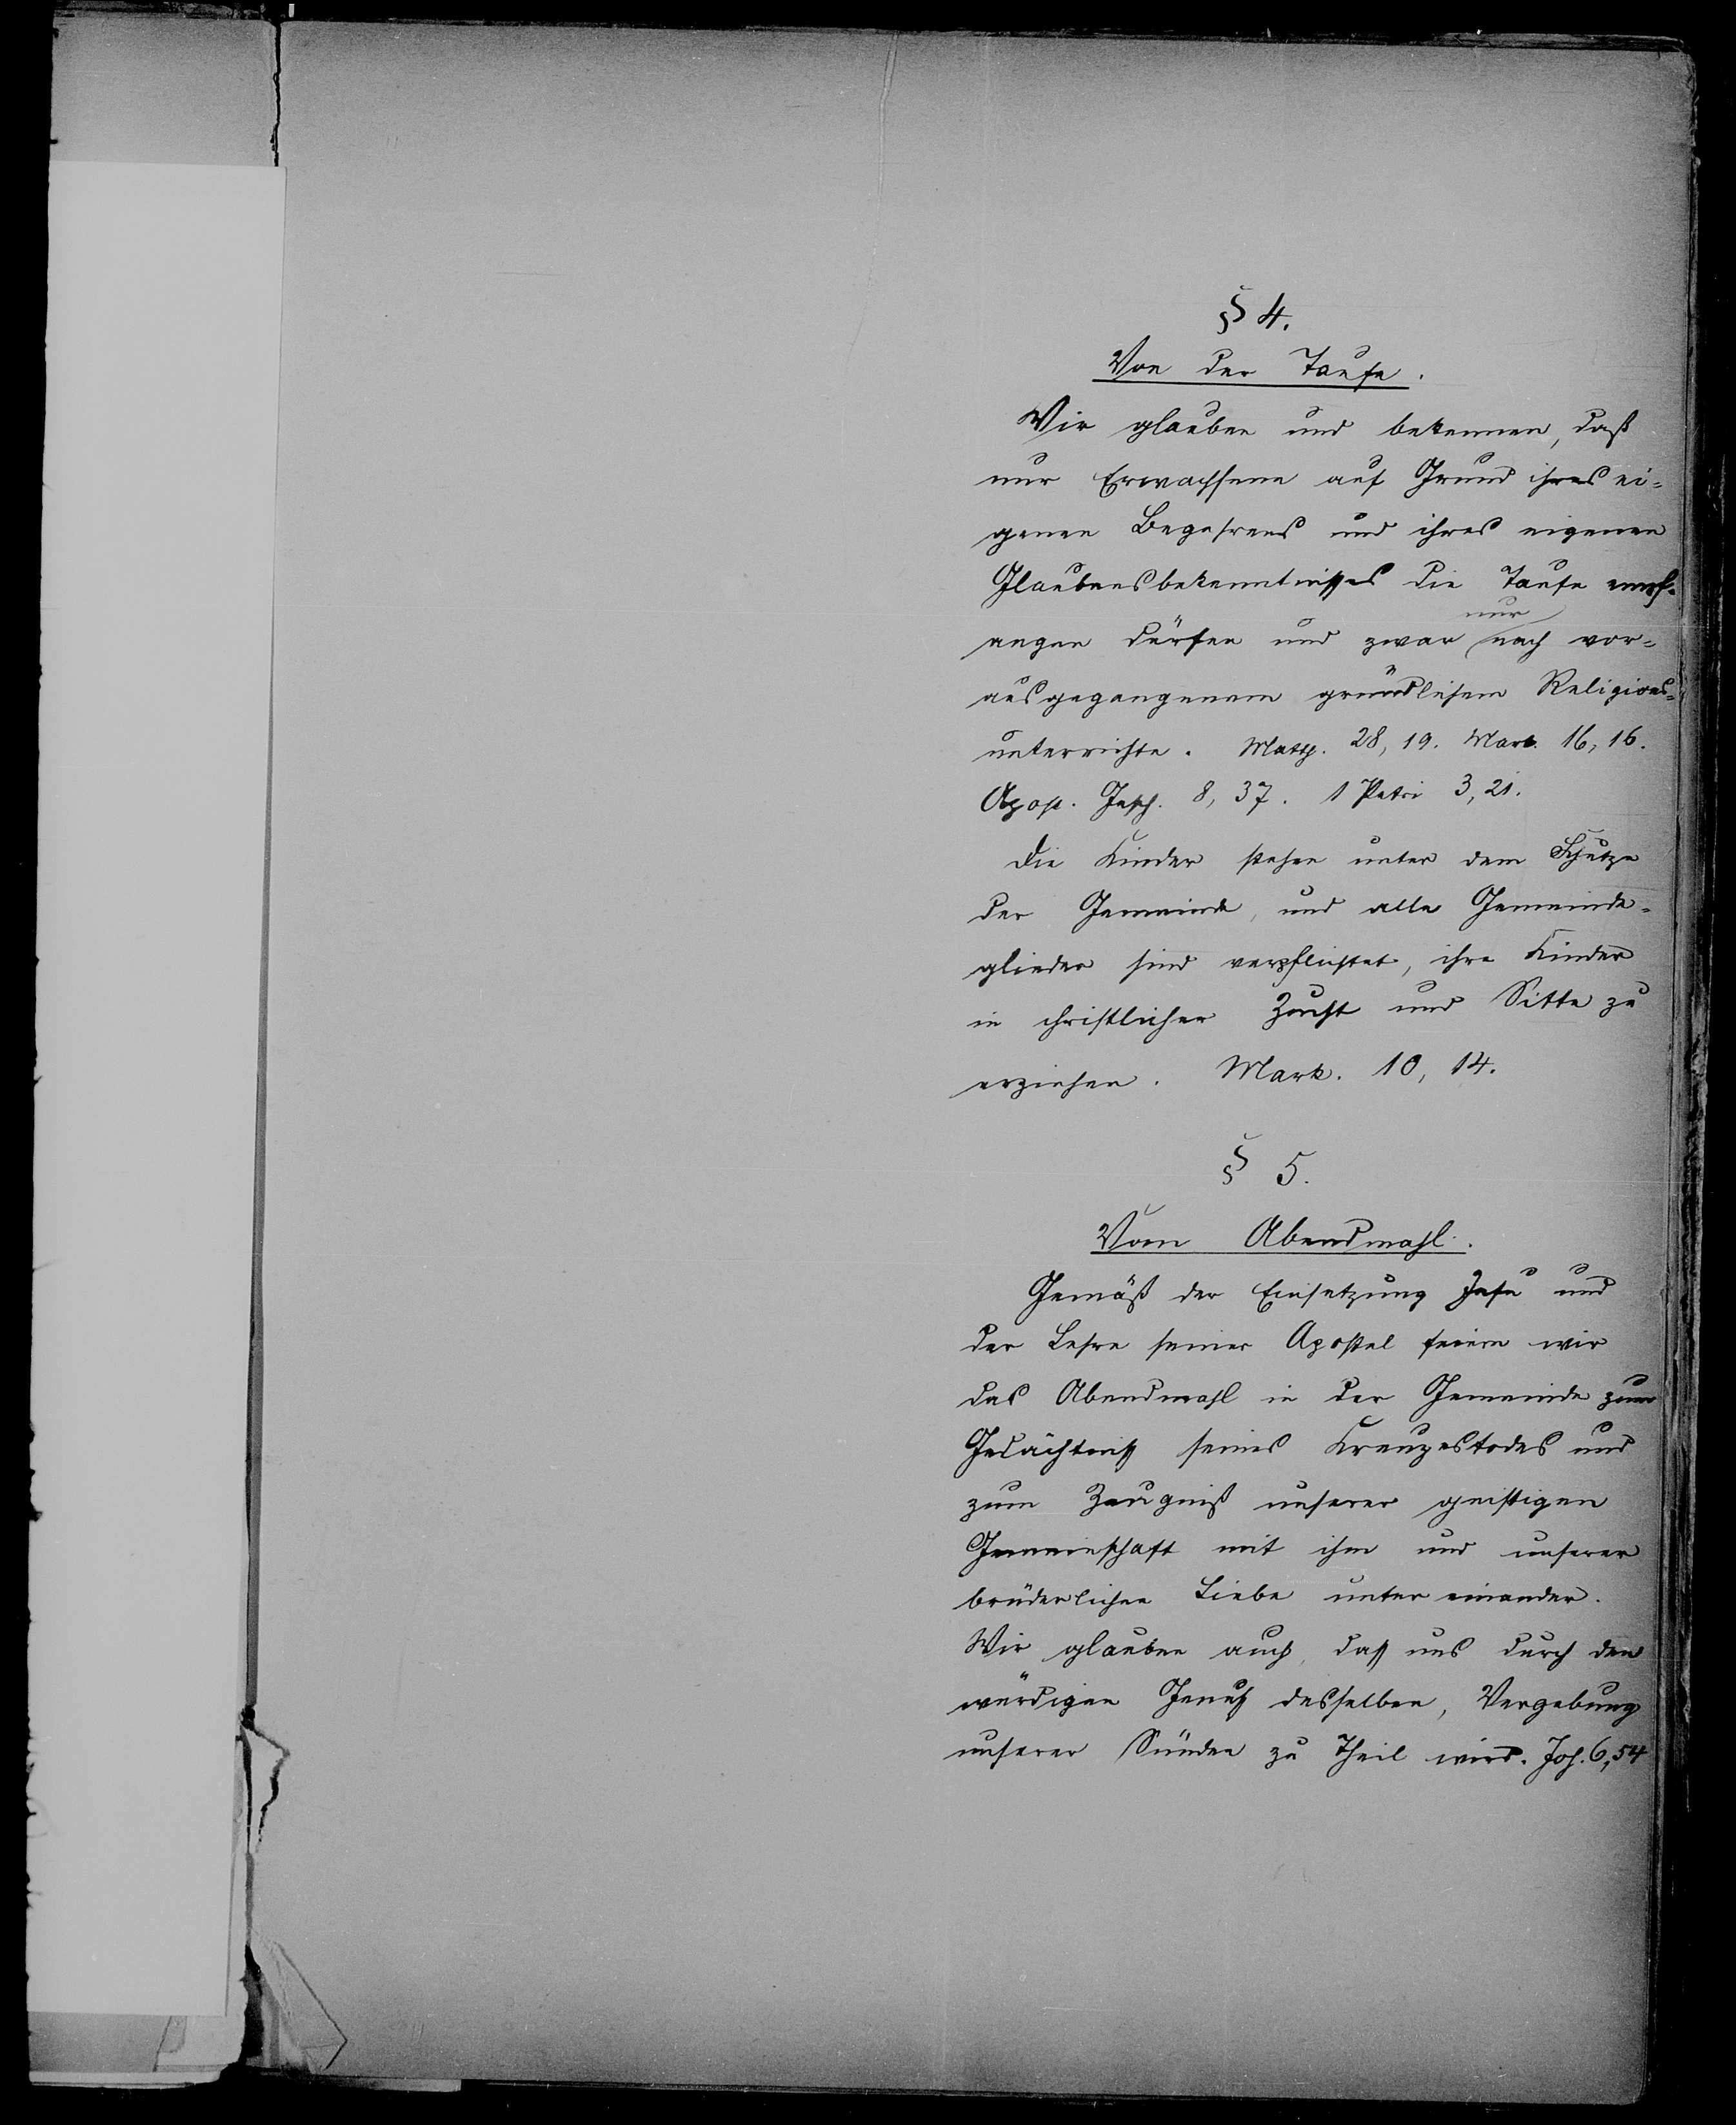 § 4.
Von der Taufe.
Wir glauben und bekennen, daß
nur Erwachsene auf Grund ihres ei-
genen Begehrens und ihres eigenen
Glaubensbekenntnisses die Taufe empf-
nur
angen dürfen und zwar nach vor-
ausgegangenem gründlichem Religions-
unterrichte. Matth. 28, 19. Mark. 16, 16.
Apost. Gesch. 8, 37. 1 Petri 3, 21.
Die Kinder stehen unter dem Schutze
der Gemeinde, und alle Gemeinde-
glieder sind verpflichtet, ihre Kinder
in christlicher Zucht und Sitte zu
erziehen. Mark. 10, 14.
§ 5.
Vom Abendmahl.
Gemäß der Einsetzung Jesu und
der Lehre seiner Apostel feiern wir
das Abendmahl in der Gemeinde zum
Gedächtniß seines Kreuzestodes und
zum Zeugniß unserer geistigen
Gemeinschaft mit ihm und unserer
brüderlichen Liebe unter einander.
Wir glauben auch, daß uns durch den
würdigen Genuß desselben, Vergebung
unserer Sünden zu Theil wird. Joh. 6, 54